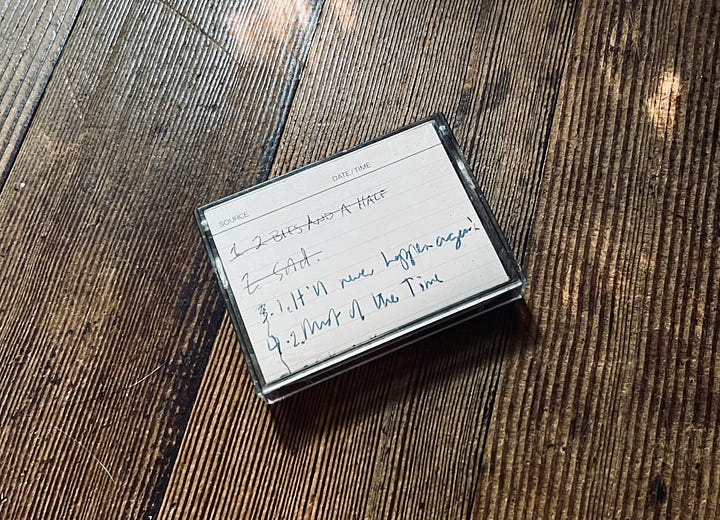 SOURCE DATE/TIME
1. 2 BITS AND A HALF
2. SAD.
3. 1. It'll never happen again
4. 2. Most of the Time